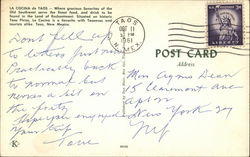 LA COCINA de TAOS — Where gracious Senoritas of the
Old Southwest serve the finest food, and drink to be
found in the Land of Enchantment. Situated on historic
Taos Plaza, La Cocina is a favorite with Taosenos and
tourists alike. Taos, New Mexico.
TAOS
OCT 11
PM
1961
N. MEX.
POST CARD
Address
Don't feel up
to letters just now
Practically back
to normal but
nerves a bit on
the
enjoyed
your
Love
Miss Agnes Dean
15 Claremont Ave
New York
NY